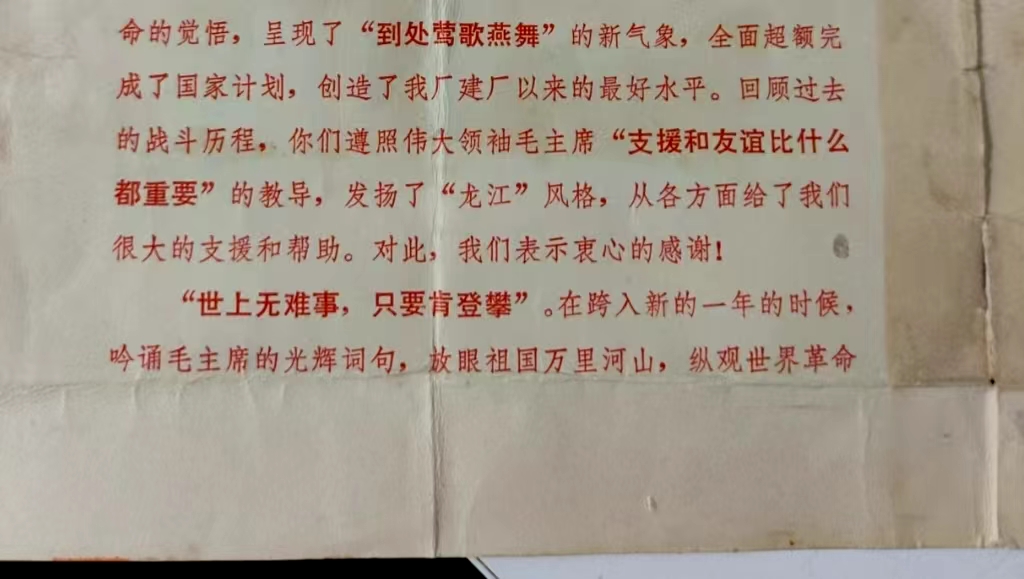 命的觉悟，呈现了“到处莺歌燕舞”的新气象，全面超额完
成了国家计划，创造了我厂建厂以来的最好水平。回顾过去
的战斗历程，你们遵照伟大领袖毛主席“支援和友谊比什么
都重要”的教导，发扬了“龙江”风格，从各方面给了我们
很大的支援和帮助。对此，我们表示衷心的感谢！
“世上无难事，只要肯登攀”。在跨入新的一年的时候，
吟诵毛主席的光辉词句，放眼祖国万里河山，纵观世界革命